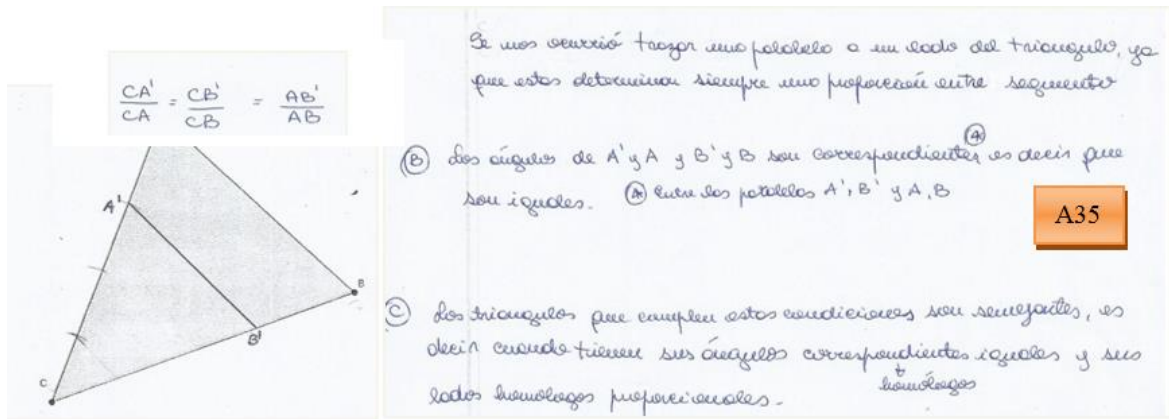 CA' / CA = CB' / CB = AB' / AB
A'
B
B'
C
Se nos ocurrió trazar una paralelo a un lado del triangulo, ya
que estas determinan siempre una proporción entre segmentos
(B) Los ángulos de A' y A y B' y B son correspondientes (*) es decir que
son iguales. (*) Entre las paralelas A', B' y A, B
A35
(C) Los triangulos que cumplen estas condiciones son semejantes, es
decir cuando tienen sus ángulos correspondientes iguales y sus
homólogos
lados homologos proporcionales.